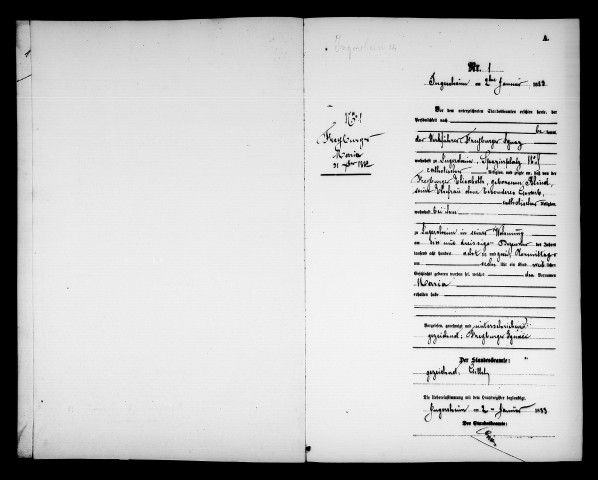 A.
Nr. 1
Ingersheim am 2ten Januar 1883
Vor dem unterzeichneten Standesbeamten erschien heute, der
Persönlichkeit nach
be kannt,
der Freyburger Ignaz
wohnhaft zu Ingersheim, Spezierplatz
catholischer Religion, und zeigte an, daß von der
Freyburger Elisabeth, geborenen
seine Ehefrau ohne besonderes Gewerb,
catholischer Religion,
wohnhaft bei ihm
zu Ingersheim in seiner Wohnung
am ein und dreissigsten Dezember des Jahres
tausend acht hundert achtzig und zwei Vormittags
um sechs Uhr ein Kind weiblichen
Geschlechts geboren worden sei, welches den Vornamen
Maria
erhalten habe
Vorgelesen, genehmigt und unterschrieben
gezeichnet: Freyburger Ignace
Der Standesbeamte:
gezeichnet:
Die Uebereinstimmung mit dem Hauptregister beglaubigt.
Ingersheim am 2ten Januar 1883
Der Standesbeamte:
No 1
Freyburger
Maria
31 1882